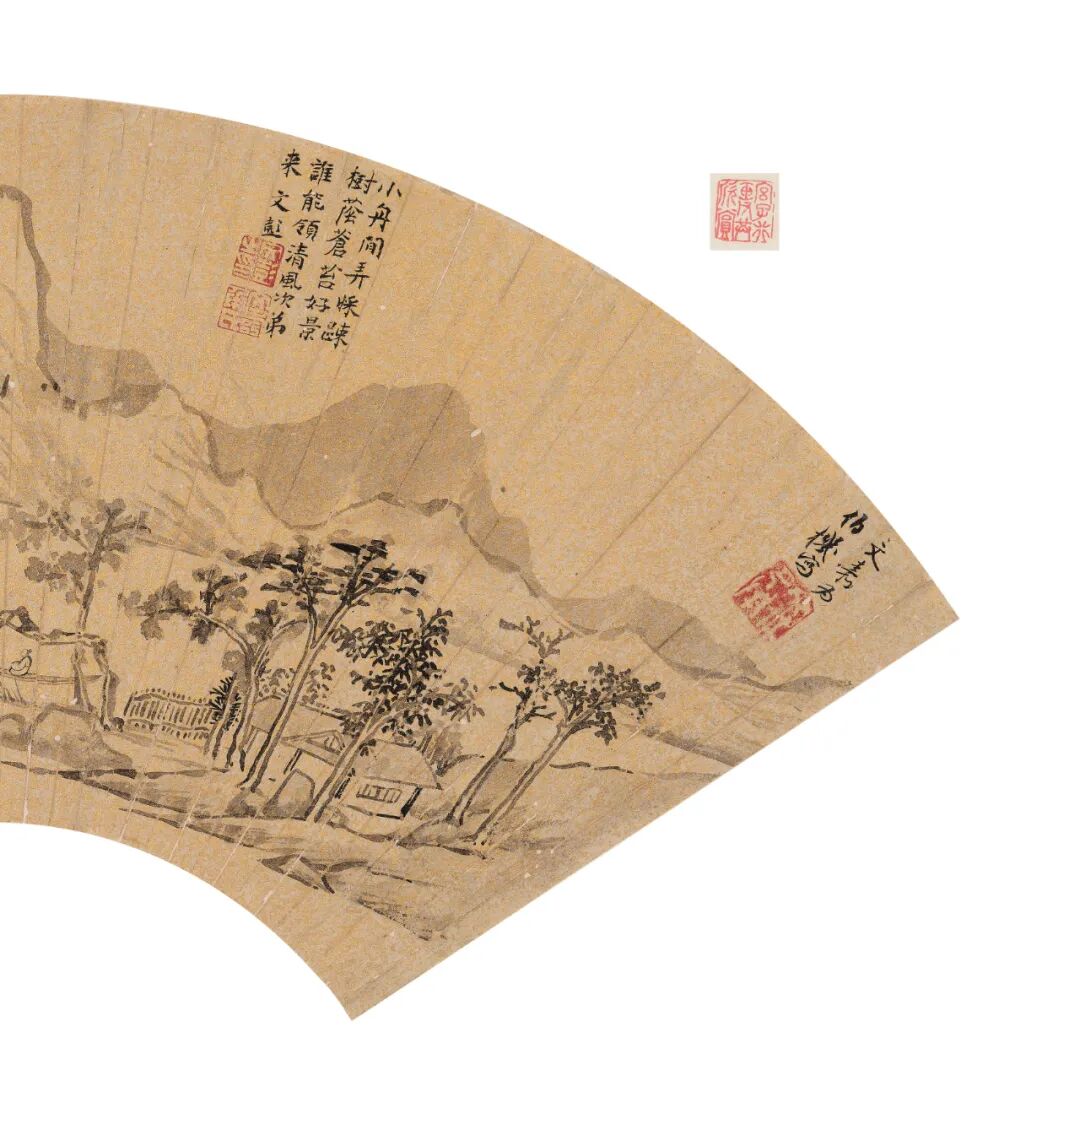 小舟閒弄踈
樹蔭蒼苔好景
誰能領清風次弟
来文彭
文嘉為
伯機寫